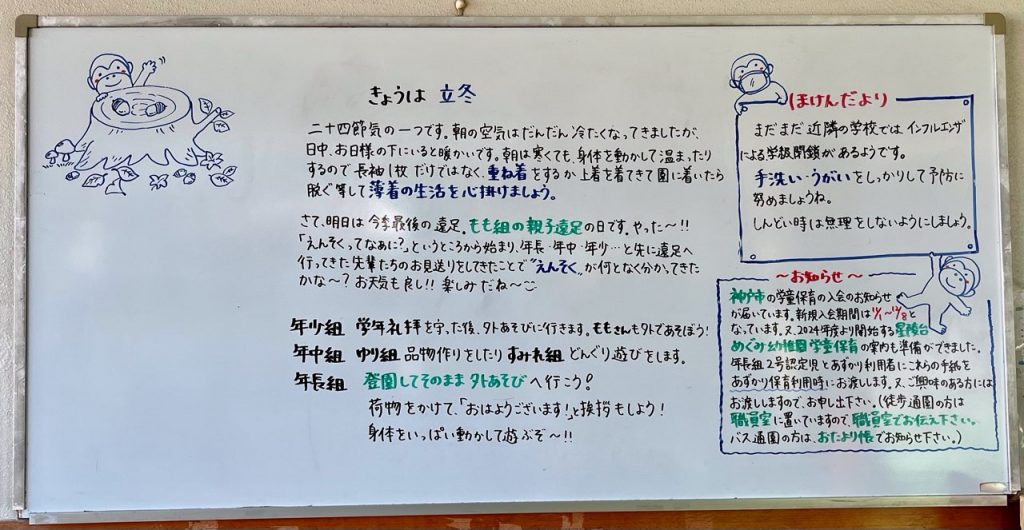 きょうは 立冬
二十四節気の一つです。朝の空気はだんだん冷たくなってきましたが、
日中、お日様の下にいると暖かいです。朝は寒くても、身体を動かして温まったり
するので長袖1枚だけではなく、重ね着をするか上着を着てきて園に着いたら
脱ぐ等して薄着の生活を心掛けましょう。
さて、明日は今季最後の遠足。もも組の親子遠足の日です。やった〜!!
「えんそくってなあに?」というところから始まり、年長・年中・年少…と先に遠足へ
行ってきた先輩たちのお見送りをしてきたことで“えんそく”が何となく分かってきた
かな〜?お天気も良し!!楽しみだね〜
年少組 学年礼拝を守った後、外あそびに行きます。ももさんも外であそぼう!
年中組 ゆり組 品物作りをしたり すみれ組 どんぐり遊びをします。
年長組 登園してそのまま外あそびへ行こう!
荷物をかけて、「おはようございます!」と挨拶もしよう!
身体をいっぱい動かして遊ぶぞ〜!!
ほけんだより
まだまだ近隣の学校では、インフルエンザ
による学級閉鎖があるようです。
手洗い・うがいをしっかりして予防に
努めましょうね。
しんどい時は無理をしないようにしましょう。
〜お知らせ〜
神戸市の学童保育の入会のお知らせ
が届いています。新規入会期間は
なっています。又、2024年度より開始する星陵台
めぐみ幼稚園学童保育の案内も準備ができました。
年長組2号認定児とあずかり利用者にこれらの手紙を
あずかり保育利用時にお渡しします。又、ご興味のある方には
お渡ししますので、お申し出下さい。(徒歩通園の方は
職員室に置いていますので、職員室でお伝え下さい。
バス通園の方は、おたより帳でお知らせ下さい。)